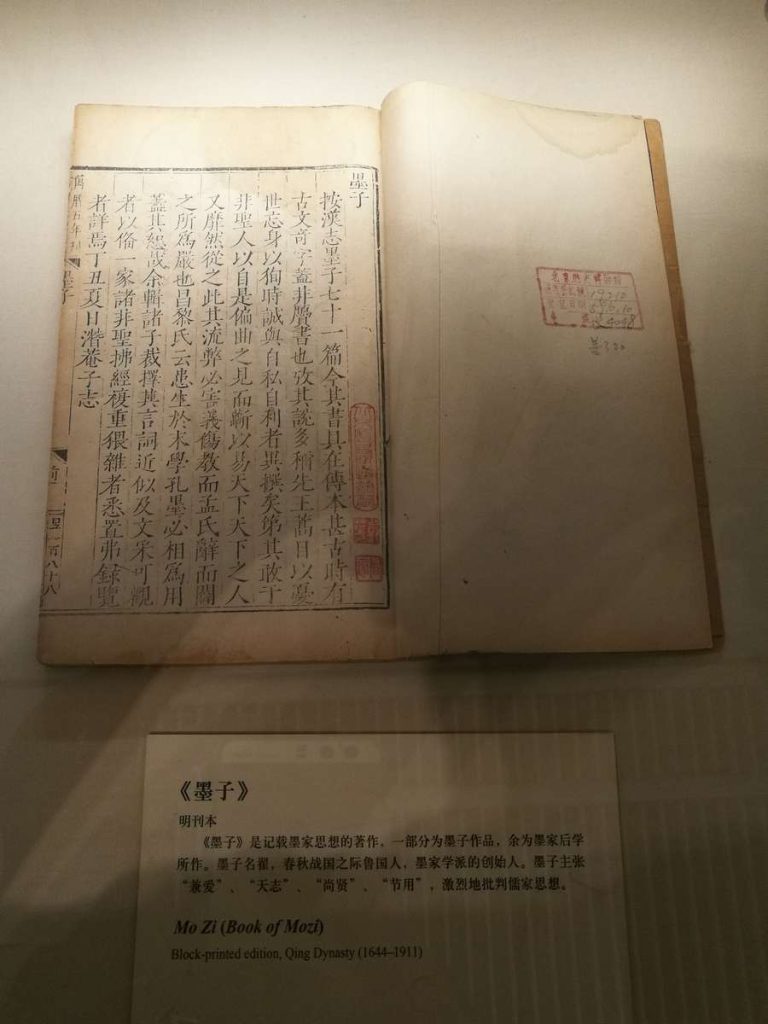 墨子
按漢志墨子七十一篇今其書具在傳本甚古時有
古文奇字蓋非贗書也攷其說多稱先王蒿目以憂
世忘身以狥時誠與自私自利者異撰矣第其敢于
非聖人以自是偏曲之見而蘄以易天下天下之人
又靡然從之此其流弊必害義傷教而孟氏辭而闢
之所為嚴也昌黎氏云患生於末學孔墨必相為用
蓋其然或余輯諸子裁擇其言詞近似及文采可觀
者以俻一家諸非聖拂經複重猥雜者悉置弗錄覽
者詳焉丁丑夏日潛菴子志
萬曆五年刊
墨子
前
一百八十八
《墨子》
明刊本
《墨子》是记载墨家思想的著作，一部分为墨子作品，余为墨家后学
所作。墨子名翟，春秋战国之际鲁国人，墨家学派的创始人。墨子主张
“兼爱”、“天志”、“尚贤”、“节用”，激烈地批判儒家思想。
Mo Zi (Book of Mozi)
Block-printed edition, Qing Dynasty (1644–1911)